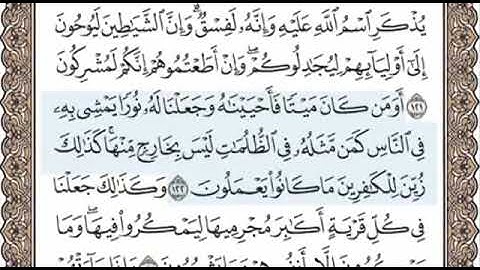 يُذْكَرِ اسْمُ اللَّهِ عَلَيْهِ وَإِنَّهُ لَفِسْقٌ ۗ وَإِنَّ الشَّيَاطِينَ لَيُوحُونَ
إِلَىٰ أَوْلِيَائِهِمْ لِيُجَادِلُوكُمْ ۖ وَإِنْ أَطَعْتُمُوهُمْ إِنَّكُمْ لَمُشْرِكُونَ
١٢١ أَوَمَن كَانَ مَيْتًا فَأَحْيَيْنَاهُ وَجَعَلْنَا لَهُ نُورًا يَمْشِي بِهِ
فِي النَّاسِ كَمَن مَّثَلُهُ فِي الظُّلُمَاتِ لَيْسَ بِخَارِجٍ مِّنْهَا ۚ كَذَٰلِكَ
زُيِّنَ لِلْكَافِرِينَ مَا كَانُوا يَعْمَلُونَ ١٢٢ وَكَذَٰلِكَ جَعَلْنَا
فِي كُلِّ قَرْيَةٍ أَكَابِرَ مُجْرِمِيهَا لِيَمْكُرُوا فِيهَا ۖ وَمَا